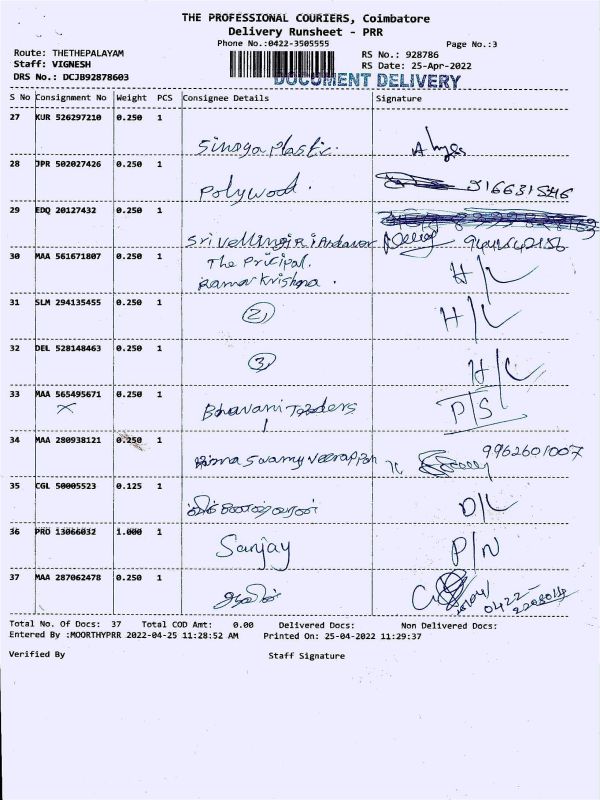 THE PROFESSIONAL COURIERS, Coimbatore
Delivery Runsheet - PRR
Phone No.:0422-3505555
Page No.:3
Route: THETHEPALAYAM
RS No.: 928786
Staff: VIGNESH
RS Date: 25-Apr-2022
DRS No.: DCJB92878603
DOCUMENT DELIVERY
S No Consignment No Weight PCS Consignee Details Signature
27 KUR 526297210 0.250 1
Plastic.
28 JPR 502027426 0.250 1
Polywood.
29 EDQ 20127432 0.250 1
Sri
30 MAA 561671807 0.250 1
The Pricipal. H/L
Krishna.
31 SLM 294135455 0.250 1
2, H/L
32 DEL 528148463 0.250 1
3, H/L
33 MAA 565495671 0.250 1
X Bhavani P/S
34 MAA 280938121 0.250 1
9962601007
35 CGL 50005523 0.125 1
D/L
36 PRO 13066032 1.000 1
Sanjay P/N
37 MAA 287062478 0.250 1
0422-
Total No. Of Docs: 37 Total COD Amt: 0.00 Delivered Docs: Non Delivered Docs:
Entered By :MOORTHYPRR 2022-04-25 11:28:52 AM Printed On: 25-04-2022 11:29:37
Verified By Staff Signature